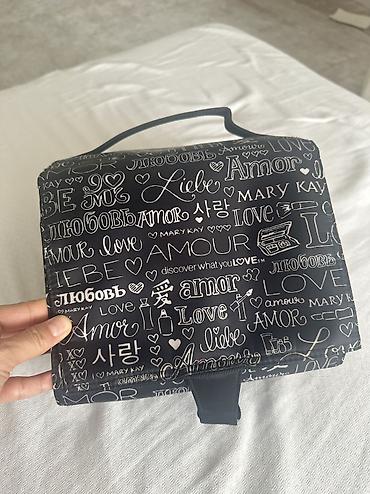 ЛЮБОВЬ Amour
KAY Amor
BE Liebe MARY KAY
ЛЮБОВЬ AMOR 사랑 LOVE
AMOUR love MARY KAY
AMOUR ЛЮБОВЬ
LIEBE discover what youLOVE LOVE
ЛЮБОВЬ 愛 amor amour
MARY KAY Love Love AMOR
Amor liebe
사랑 Amour
MARY KAY
AMOR